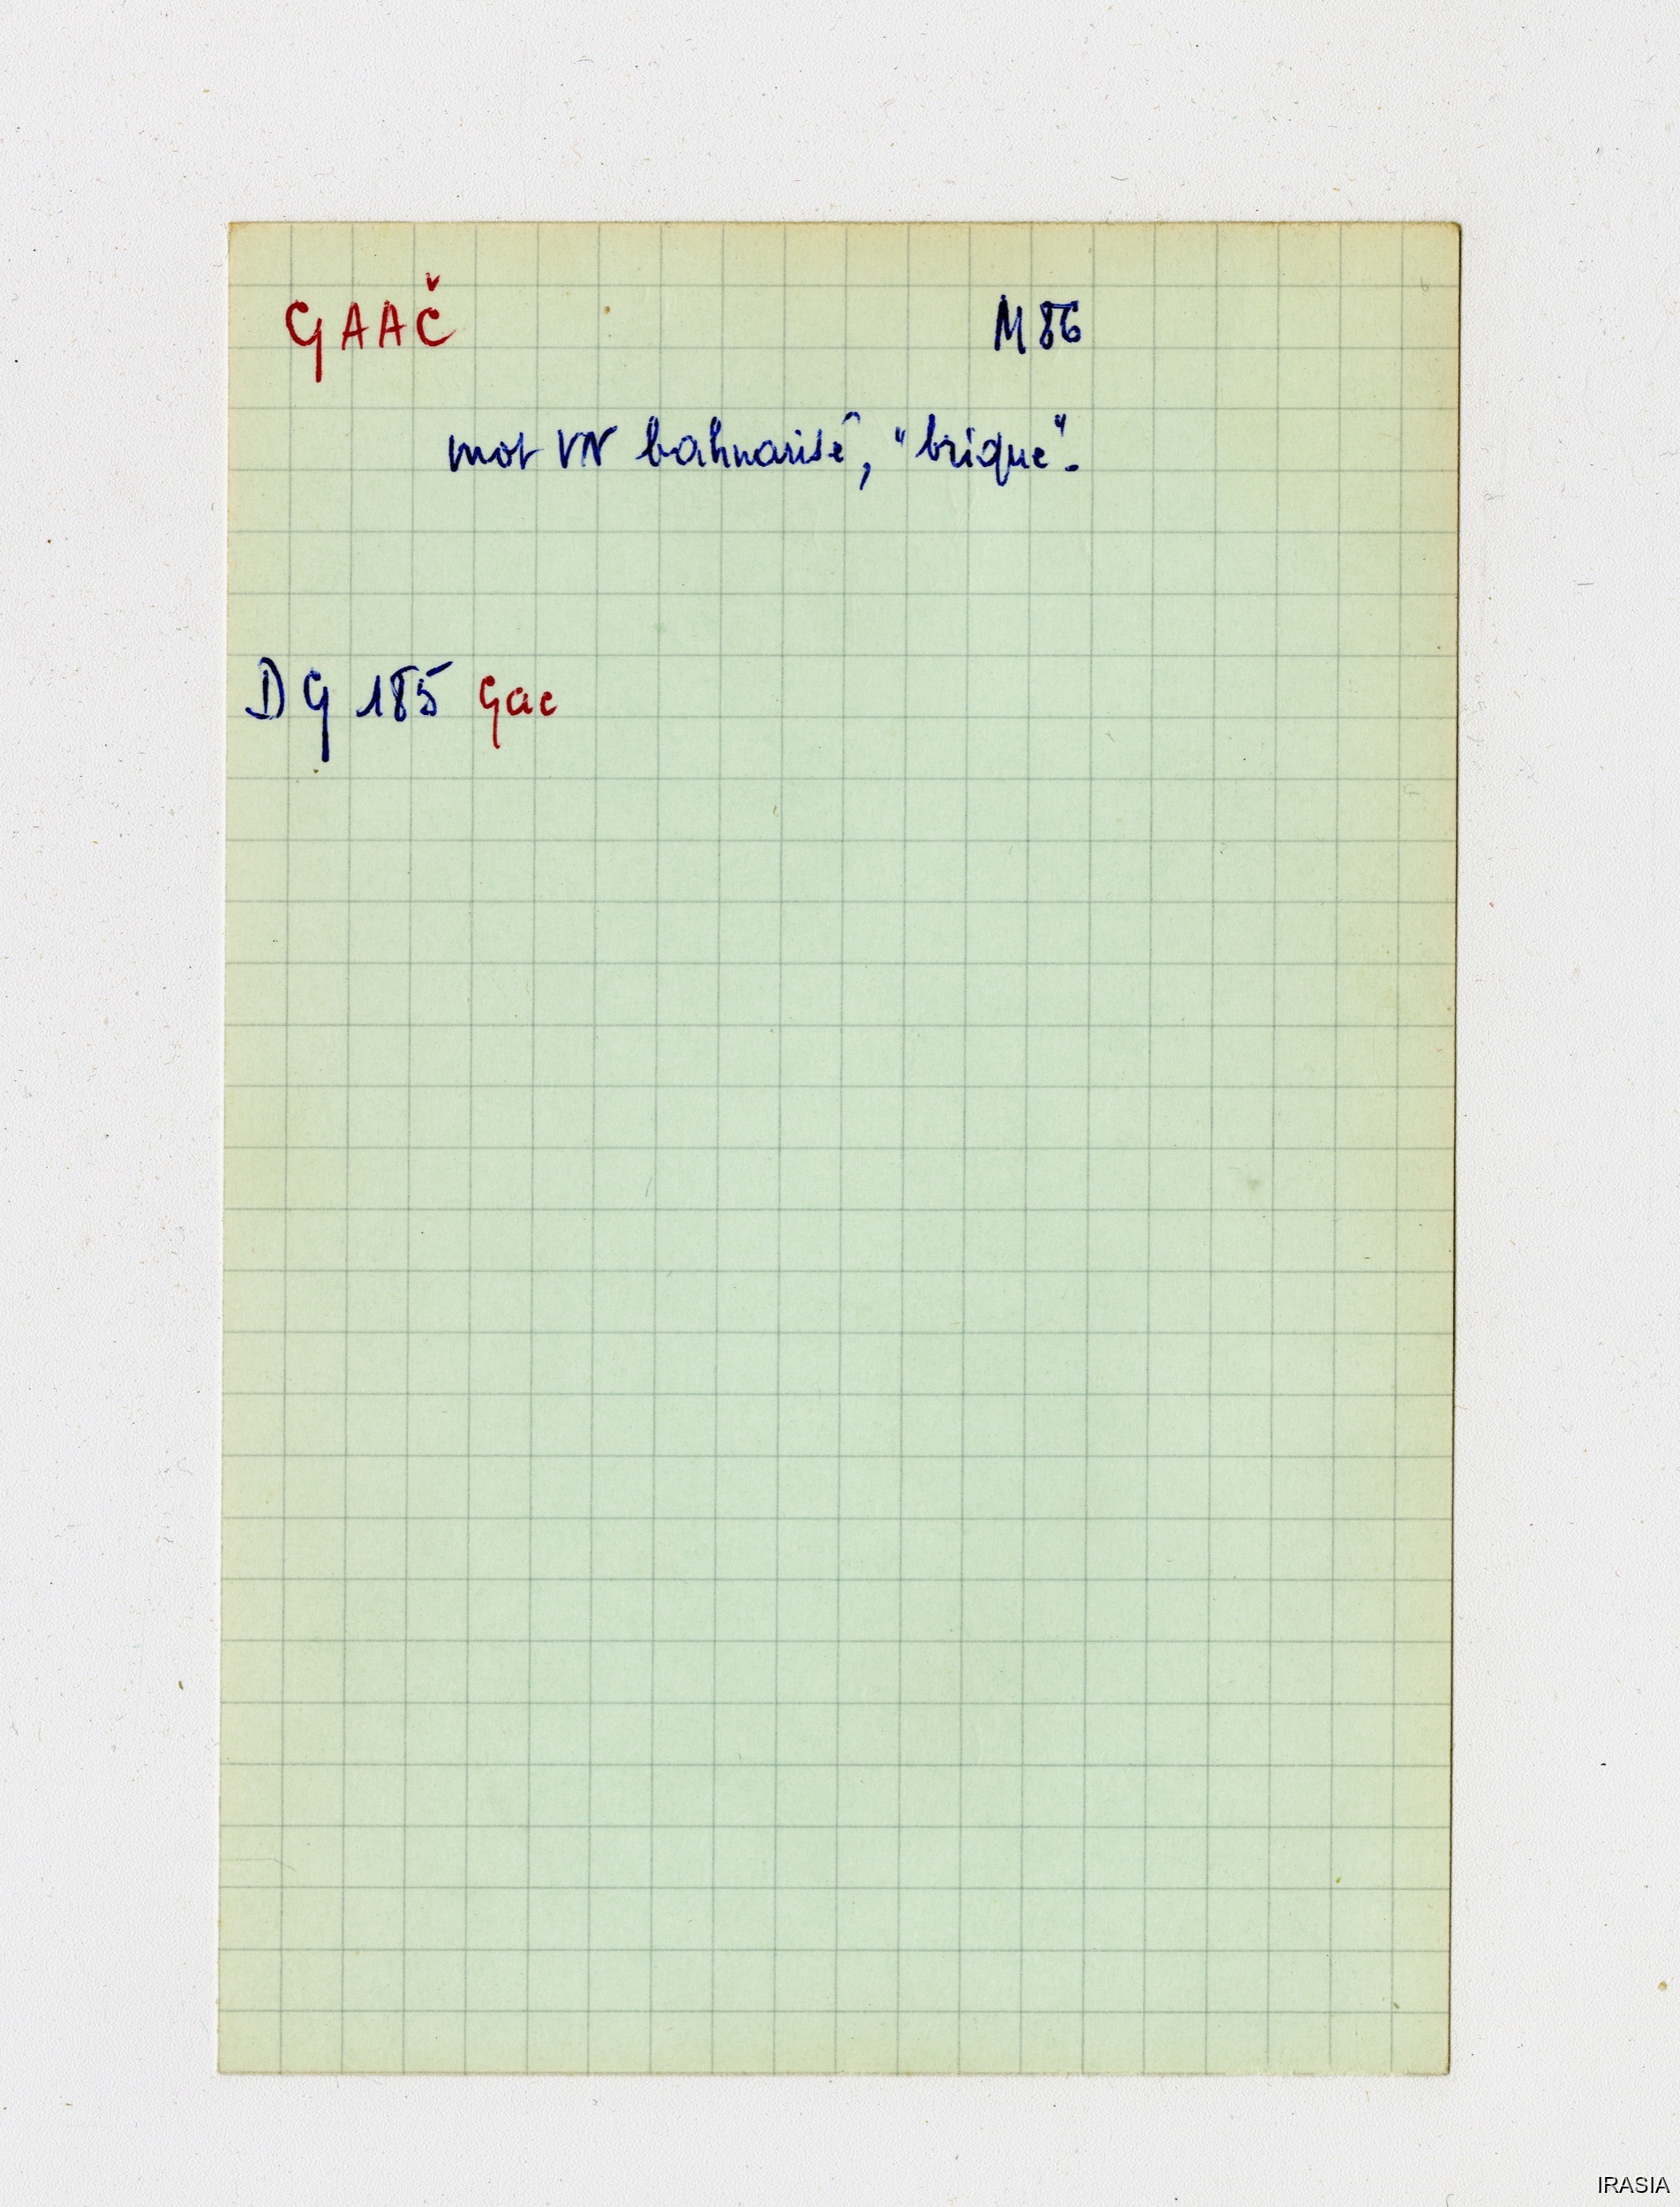 GAAČ M 86
mot VN bahnarisé, "brique".
DG 185 Gac
IRASIA